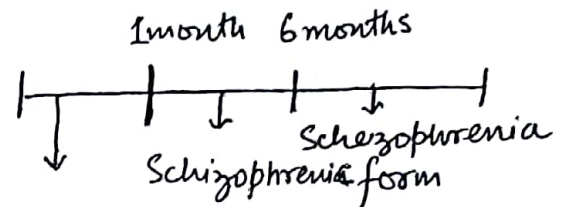 1month 6months
Schezophrenia
Schizophrenic form